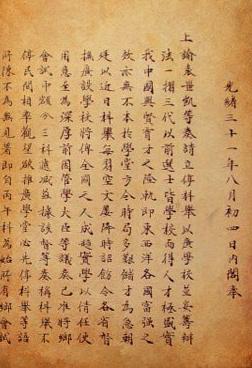 光緒三十一年八月初四日內閣奉
上諭袁世凱等奏請立停科舉以廣學校並妥籌辦
法一摺三代以前選士皆學校而得人才極盛實
我中國興賢育才之隆軌即東西洋各國富強之
效亦無不本於學堂方今時局多艱儲才為急朝
廷以近日科舉每習空文屢降明詔飭令各省督
撫廣設學校將俾全國之人咸趨實學以備任使
用意至為深厚前因管學大臣等議奏已准將鄉
會試中額分三科遞減茲據該督等奏稱科舉不
停民間相率觀望欲推廣學堂必先停科舉等語
所陳不為無見著即自丙午科為始所有鄉會試